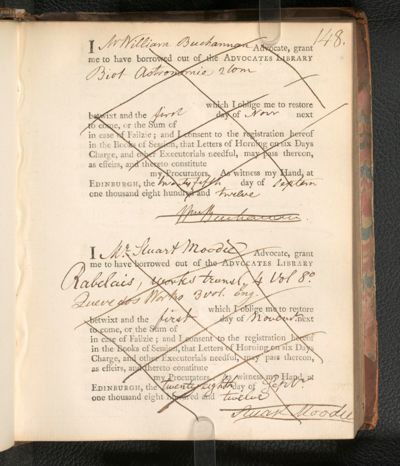 148.
I Mr William Buchannan Advocate, grant
me to have borrowed out of the ADVOCATES LIBRARY
Biot Astronomie 2 tom
which I oblige me to restore
betwixt and the first day of Novr next
to come, or the Sum of
in case of Failzie; and I consent to the registration hereof
in the Books of Session, that Letters of Horning on six Days
Charge, and other Executorials needful, may pass thereon,
as effeirs, and thereto constitute
my Procurators. As witness my Hand, at
EDINBURGH, the twenty fifth day of Septem
one thousand eight hundred and twelve
Wm Buchannan
I Mr. Stuart Moodie Advocate, grant
me to have borrowed out of the ADVOCATES LIBRARY
Rabelais, works transl. 4 Vol 8o
Quevedos Works 3 vol. Eng.
which I oblige me to restore
betwixt and the first day of Novemr. next
to come, or the Sum of
in case of Failzie; and I consent to the registration hereof
in the Books of Session, that Letters of Horning on six Days
Charge, and other Executorials needful, may pass thereon,
as effeirs, and thereto constitute
my Procurators. As witness my Hand, at
EDINBURGH, the twenty eighth day of Septr.
one thousand eight hundred and twelve
Stuart Moodie